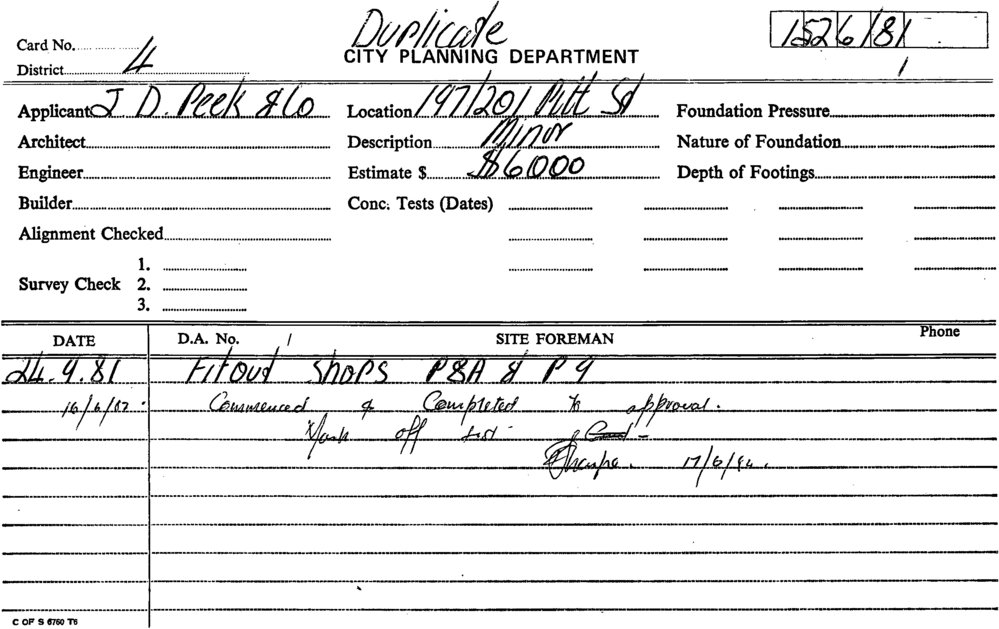 Duplicate
1526/81
Card No.
CITY PLANNING DEPARTMENT
District 4
Applicant J D. Peek & Co Location 197/201 Pitt St Foundation Pressure
Architect Description Minor Nature of Foundation
Engineer Estimate $ $6000 Depth of Footings
Builder Conc. Tests (Dates)
Alignment Checked
1.
Survey Check 2.
3.
DATE D.A. No. SITE FOREMAN Phone
24.9.81 Fitout Shops P8A & P9
16/6/82. Commenced & Completed to approval.
Mark off list
17/6/82.
C OF S 6760 T6